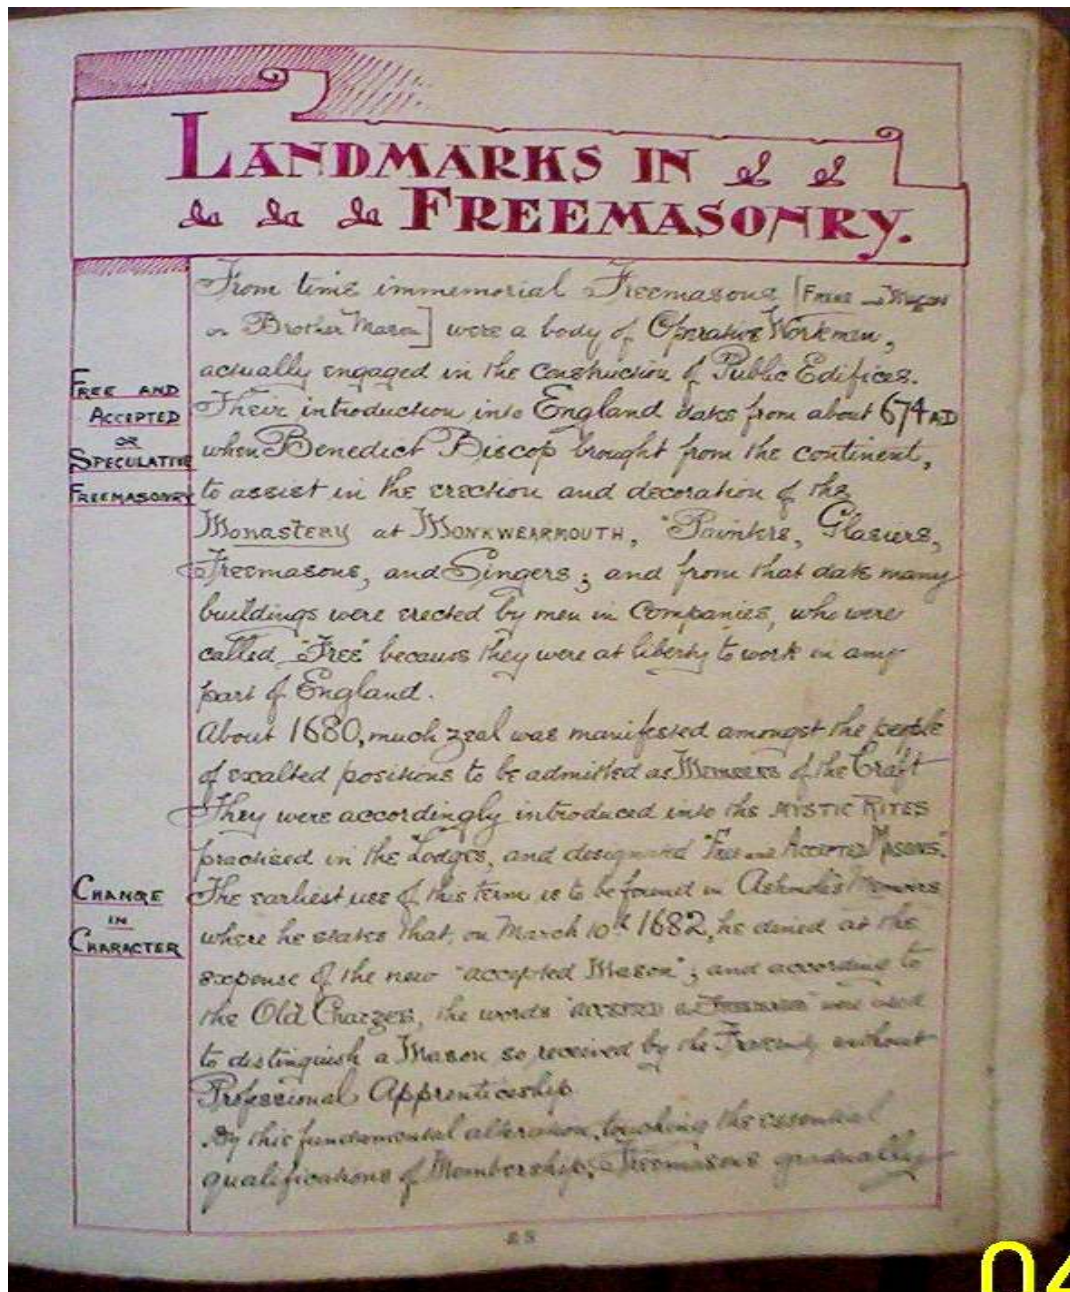 LANDMARKS IN
FREEMASONRY.
From time immemorial Freemasons [Frere Maçon
or Brother Mason] were a body of Operative Workmen,
actually engaged in the Construction of Public Edifices.
FREE AND
ACCEPTED
OR
SPECULATIVE
FREEMASONRY
Their introduction into England dates from about 674 AD
when Benedict Biscop brought from the continent,
to assist in the erection and decoration of the
Monastery at MONKWEARMOUTH, "Painters, Glasiers,
Freemasons, and Singers; and from that date many
buildings were erected by men in Companies, who were
called "Free" because they were at liberty to work in any
part of England.
About 1680, much zeal was manifested amongst the people
of exalted positions to be admitted as Members of the Craft
They were accordingly introduced into the MYSTIC RITES
practised in the Lodges, and designated "Free and Accepted Masons".
CHANGE
IN
CHARACTER
The earliest use of this term is to be found in Ashmole's Memoirs
where he states that, on March 10th 1682, he dined at the
expense of the new "accepted Mason"; and according to
the Old Charges, the words "accepted Freemason" were used
to distinguish a Mason so received by the Fraternity without
Professional Apprenticeship
By this fundamental alteration, touching the essential
qualifications of Membership, Freemasons gradually
04